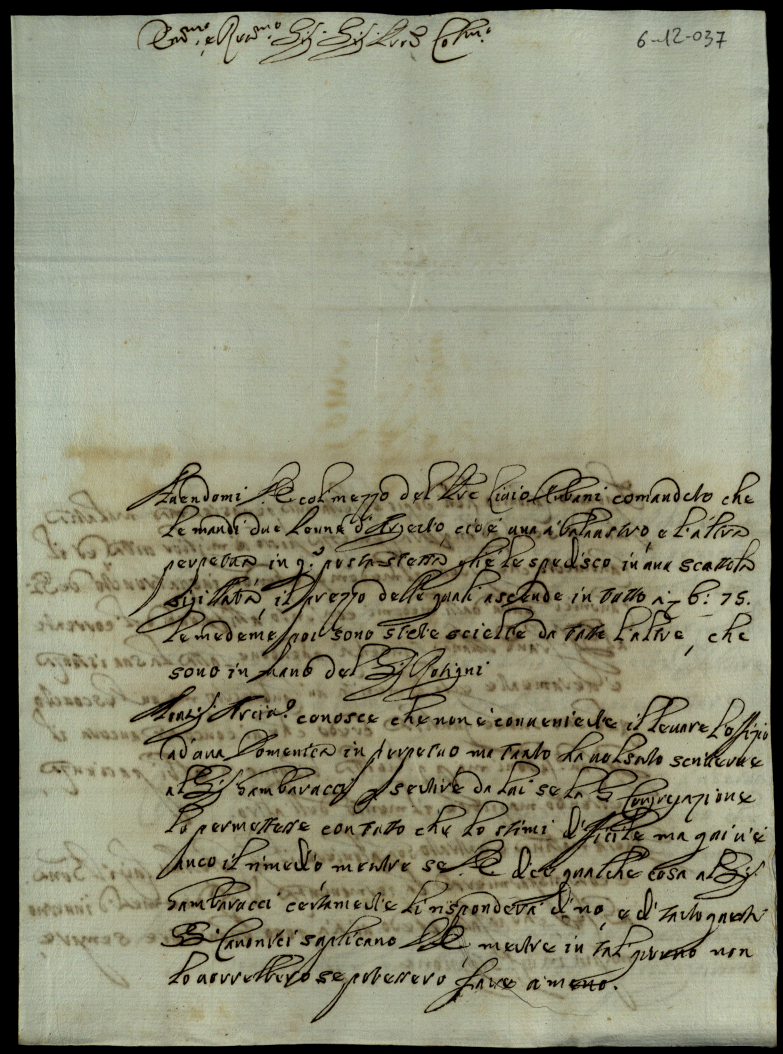 6-12-037
Em.mo e Rev.mo Sig. Sig. Pron. Col.mo
Havendomi V.E. col mezzo del Pre Livio Albani comandato che
le mandi due corone d'Argento, cioè una a balaustro e l'altra
perpetua in q.a posta stessa gliele spedisco in una scattola
sigillata, il prezzo delle quali ascende in tutto a b: 75.
Le medeme poi sono state scielte da tutte l'altre, che
sono in mano del Sig.
Monsig. conosce che non è conveniente il levare l'offizio
ad una Domenica in perpetuo ma tanto ha volsuto scrivere
al Sig. Gambarucci e sentire da lui se la S. Congregazione
lo permettesse con tutto che lo stimi difficile ma qui v'è
anco il rimedio mentre se V.E. dice qualche cosa al Sig.
Gambarucci certamente li risponderà di no, e di tanto questi
SS. Canonici suplicano V.E. mentre in tal giorno non
lo vorrebbero se potessero fare a meno.